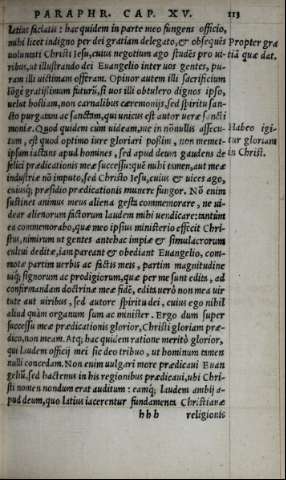 PARAPHR. CAP. XV. 113
latius faciatis: hac quidem in parte meo fungens officio,
nihi licet indigno per dei gratiam delegato, & obsequēs
Propter gra
voluntati Christi Iesu, cuius negotium ago studēs pro ui-
tiā quæ dat.
ribus, ut illustrando dei Euangelio inter uos gentes, pu-
ram illi uictimam offeram. Opinor autem illi sacrificium
lōge gratissimum futurū, si uos illi obtulero dignos ipso,
uelut hostiam, non carnalibus cæremonijs, sed spiritu san-
cto purgatam ac sanctam, qui unicus est autor ueræ sancti
moniæ. Quod quidem cùm uideam, me in nōnullis assecu-
Habeo igi-
tum, est quod optimo iure gloriari possim, non memet-
tur gloriam
ipsum iactans apud homines, sed apud deum gaudens de
in Christ.
felici prædicationis meæ successu: que nihil tamen, aut meæ
industriæ nō imputo, sed Christo Iesu, cuius & uices ago,
eiusq; præsidio prædicationis munere fungor. Nō enim
sustinet animus meus aliena gesta commemorare, ne ui-
dear alienorum factorum laudem mihi uendicare: tantùm
ea commemorabo, quæ meo ipsius ministerio effecit Chri-
stus, nimirum ut gentes antehac impiæ & simulacrorum
cultui deditæ, iam pareant & obediant Euangelio, com-
motæ partim uerbis ac factis meis, partim magnitudine
uiq; signorum ac prodigiorum, quæ per me sunt edita, ad
confirmandam doctrinæ meæ fidē, edita uerò non mea uir
tute aut uiribus, sed autore spiritu dei, cuius ego nihil
aliud quàm organum sum ac minister. Ergo dum super
successu meæ prædicationis glorior, Christi gloriam præ-
dico, non meam. Atq; hac quidem ratione meritò glorior,
qui laudem officij mei sic deo tribuo, ut hominum tamen
nulli concedam. Non enim uulgari more prædicaui Euan
geliū, sed hactenus in his regionibus prædicaui, ubi Chri-
sti nomen nondum erat auditum: eamq; laudem ambij a-
pud deum, quo latius iacerentur fundamenta Christianæ
hhh religionis